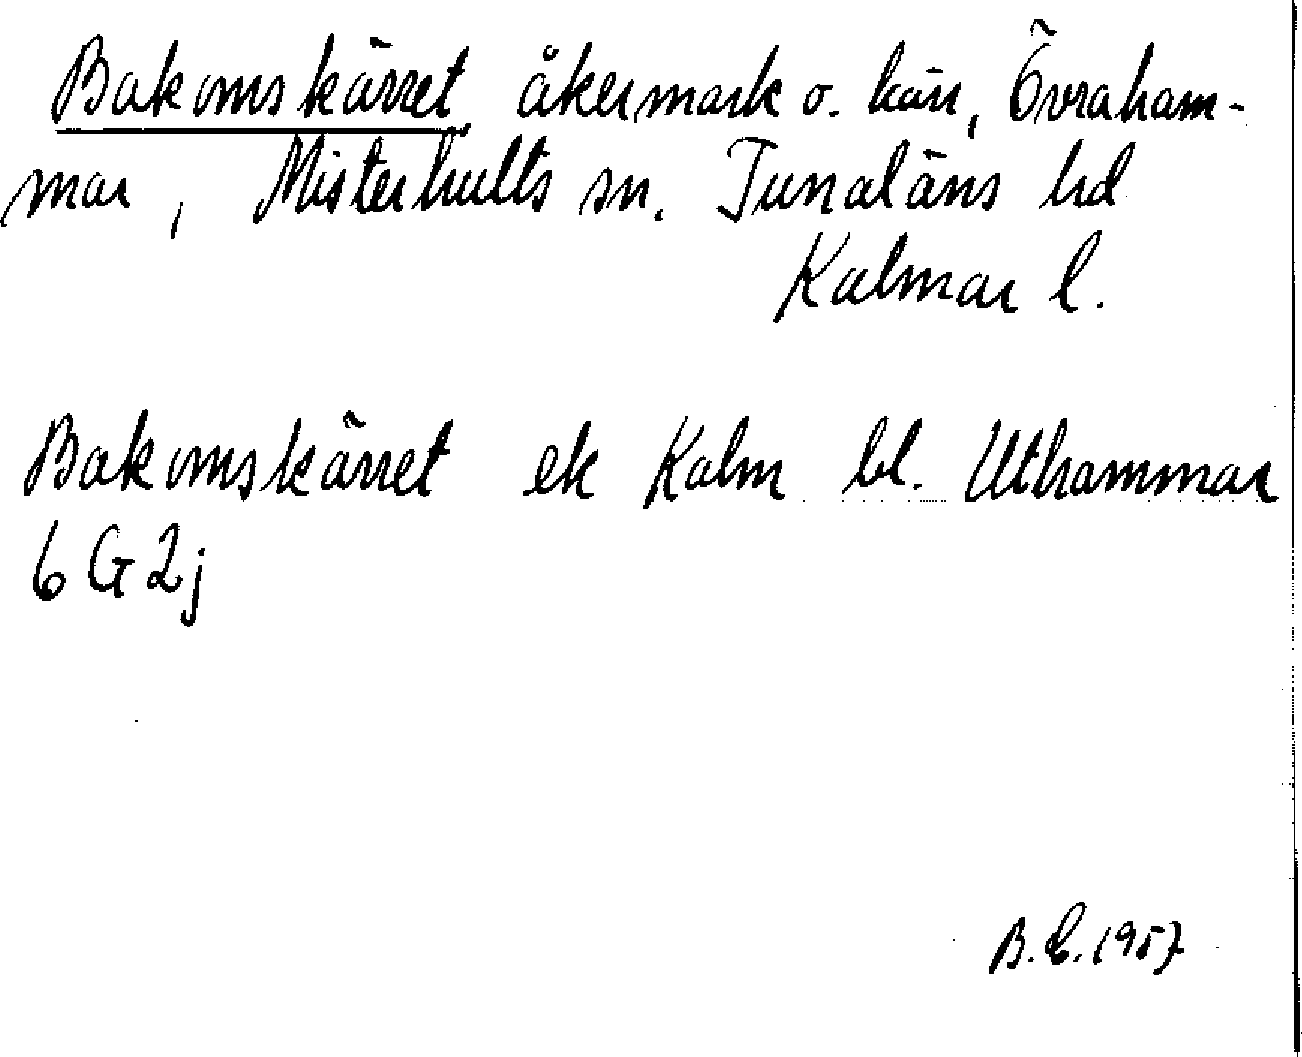 Bakomskärret, åkermark o. kärr, Övraham-
mar, Misterhults sn. Tunaläns hd
Kalmar l.
Bakomskärret ek Kalm bl. Uthammar
6 G 2j
B.E. 1957